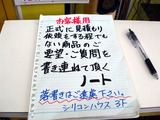 お客様用
正式に見積り
依頼をする程でも
ない商品のご
要望、ご質問を
書き連ねて頂く
ノート
落書きはご遠慮下さい。
シリコンハウス 3F